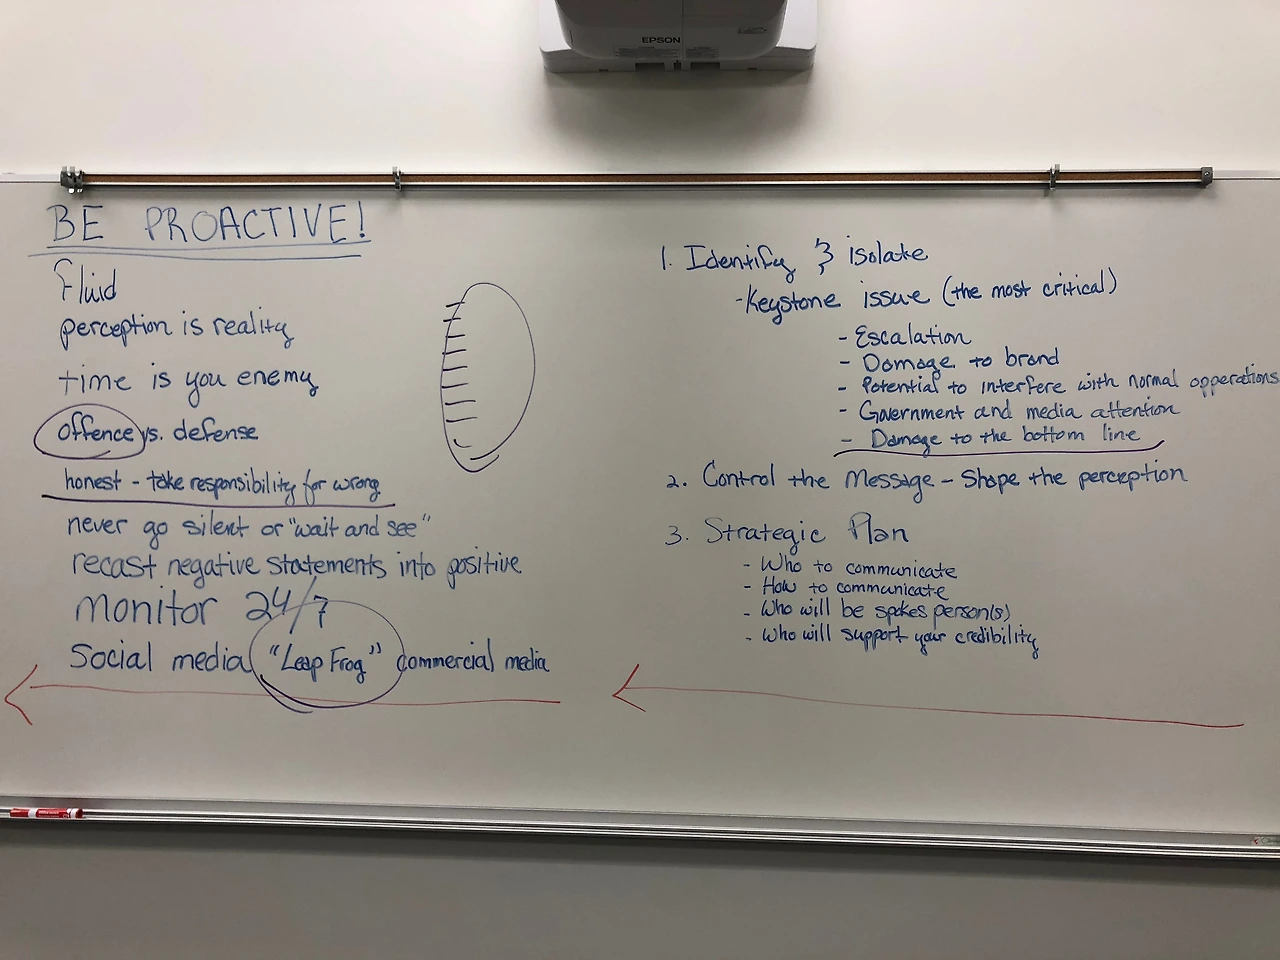 EPSON
BE PROACTIVE!
fluid
perception is reality
time is you enemy
offence vs. defense
honest - take responsibility for wrong
never go silent or "wait and see"
recast negative statements into positive
monitor 24/7
Social media "Leap Frog" commercial media
1. Identify & isolate
- Keystone issue (the most critical)
- Escalation
- Damage to brand
- Potential to interfere with normal opperations
- Government and media attention
- Damage to the bottom line
2. Control the Message - Shape the perception
3. Strategic Plan
- Who to communicate
- How to communicate
- Who will be spokes person(s)
- Who will support your credibility